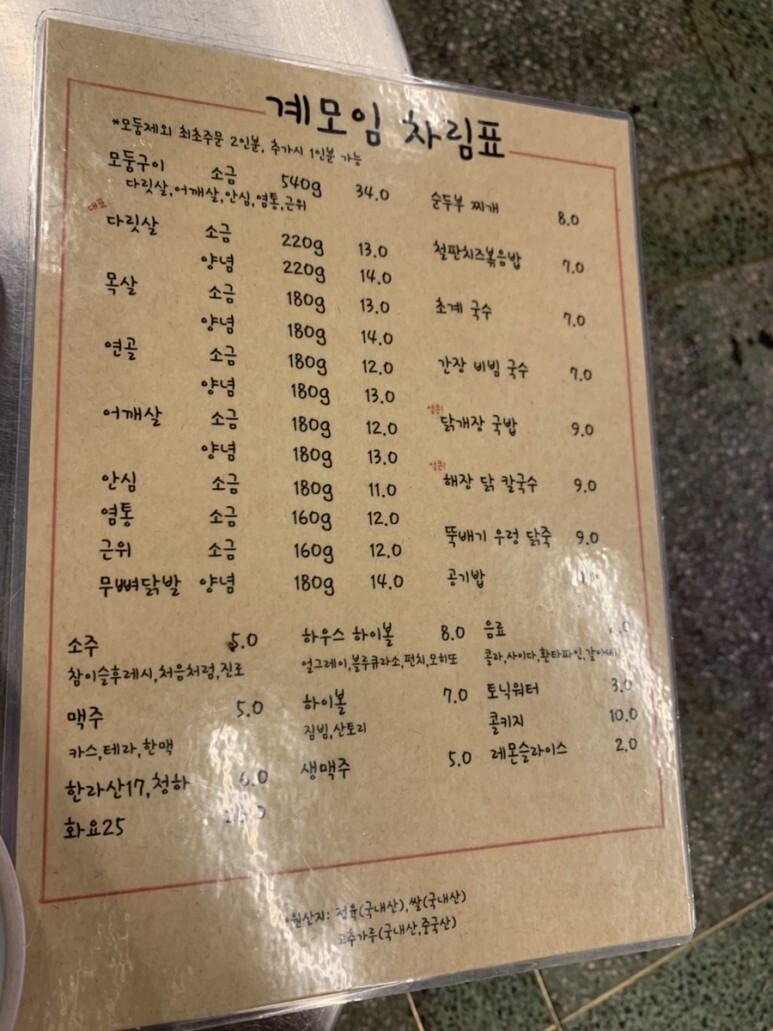 계모임 차림표
*모둠제외 최초주문 2인분, 추가시 1인분 가능
모둠구이 소금 540g 34.0
다릿살,어깨살,안심,염통,근위
대표
다릿살 소금 220g 13.0
양념 220g 14.0
목살 소금 180g 13.0
양념 180g 14.0
연골 소금 180g 12.0
양념 180g 13.0
어깨살 소금 180g 12.0
양념 180g 13.0
안심 소금 180g 11.0
염통 소금 160g 12.0
근위 소금 160g 12.0
무뼈닭발 양념 180g 14.0
순두부 찌개 8.0
철판치즈볶음밥 7.0
초계 국수 7.0
간장 비빔 국수 7.0
얼큰!
닭개장 국밥 9.0
얼큰!
해장 닭 칼국수 9.0
뚝배기 우렁 닭죽 9.0
공기밥
소주 5.0
참이슬후레시,처음처럼,진로
맥주 5.0
카스,테라,한맥
한라산17,청하 6.0
화요25
하우스 하이볼 8.0
얼그레이,블루큐라소,펀치,모히또
하이볼 7.0
짐빔,산토리
생맥주 5.0
음료
콜라,사이다,환타파인,갈아배
토닉워터 3.0
콜키지 10.0
레몬슬라이스 2.0
원산지: 정육(국내산),쌀(국내산)
고추가루(국내산,중국산)